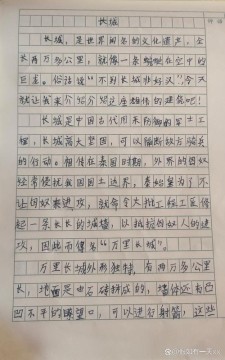 长城
长城，是世界闻名的文化遗产，全
长两万多公里，就像一条蜿蜒在空中的
巨龙。俗话说“不到长城非好汉”，今天
就让我来介绍介绍这座雄伟的建筑吧！
长城是中国古代用来防御的军事工
程，长城高大坚固，可以隔断敌方骑兵
的行动。相传在秦国时期，外界的匈奴
经常侵扰我国国土边界。秦始皇为了不
让匈奴来进攻，就命令大批工程工匠修
起一条长长的城墙，以抵抗匈奴人的进
攻，因此而得名“万里长城”。
万里长城外形独特，有两万多公里
长，地面是由石砖拼成的，墙体还有凹
凹不平的瞭望口，可以进行射箭，这些